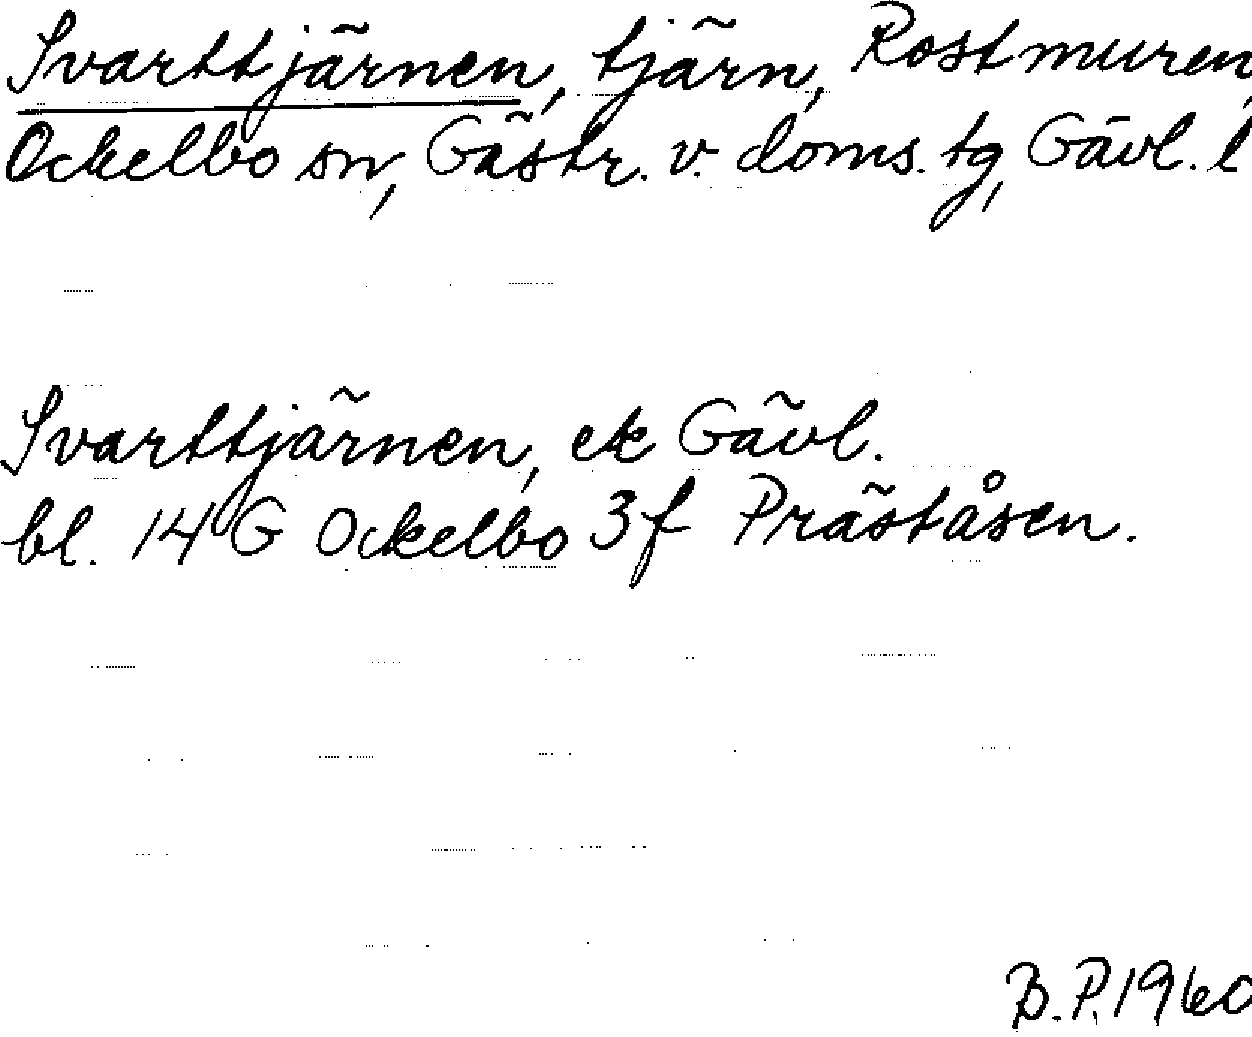 Svarttjärnen, tjärn, Rostmuren,
Ockelbo sn, Gästr. v. doms. tg, Gävl. l
Svarttjärnen, ek Gävl.
bl. 14 G Ockelbo 3 f Präståsen.
B. P. 1960